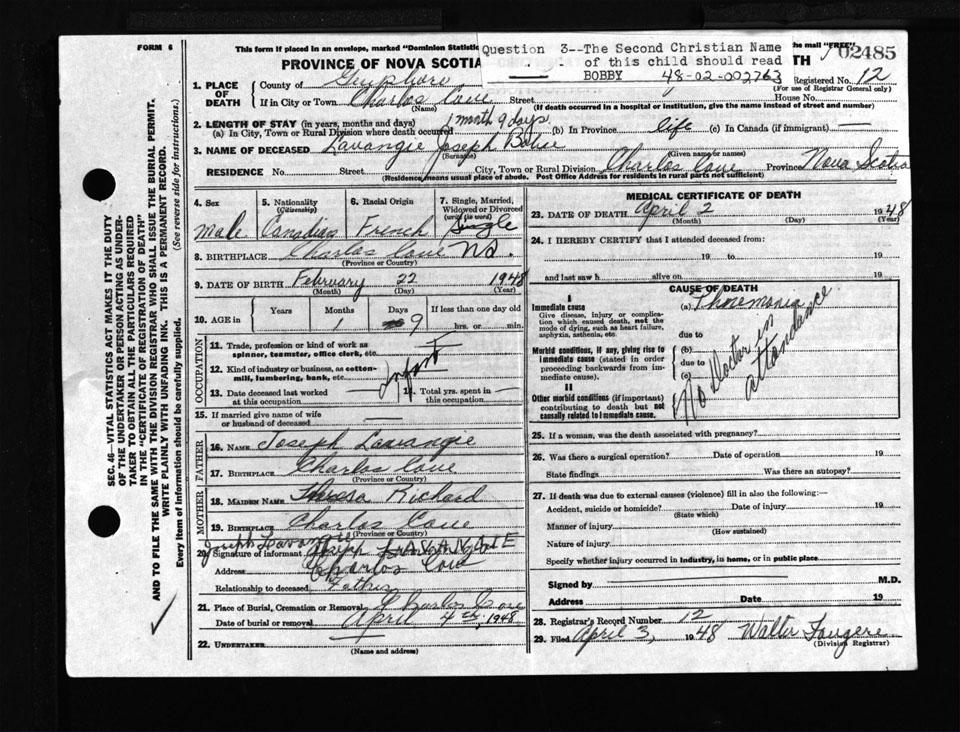 FORM 6
This form if placed in an envelope, marked "Dominion Statistic
the mail "FREE"
02485
Question 3--The Second Christian Name
of this child should read
BOBBY 48-02-002763
PROVINCE OF NOVA SCOTIA
TH
1. PLACE OF DEATH
County of Guysboro
Registered No. 12
(For use of Registrar General only)
If in City or Town Charlos Cove Street House No.
(Name) (If death occurred in a hospital or institution, give the name instead of street and number)
2. LENGTH OF STAY (in years, months and days)
(a) In City, Town or Rural Division where death occurred 1 month 9 days (b) In Province life (c) In Canada (if immigrant) —
3. NAME OF DECEASED Lavangie Joseph
(Surname) (Given name or names)
RESIDENCE No. Street City, Town or Rural Division Charlos Cove Province Nova Scotia
(Residence means usual place of abode. Post Office Address for residents in rural parts not sufficient)
4. Sex Male
5. Nationality (Citizenship) Canadian
6. Racial Origin French
7. Single, Married, Widowed or Divorced (write the word) Single
8. BIRTHPLACE Charlos Cove N.S.
(Province or Country)
9. DATE OF BIRTH February 22 1948
(Month) (Day) (Year)
10. AGE in Years Months 1 Days 9 If less than one day old
hrs. or min.
OCCUPATION
11. Trade, profession or kind of work as spinner, teamster, office clerk, etc.
12. Kind of industry or business, as cotton-mill, lumbering, bank, etc.
Infant
13. Date deceased last worked at this occupation
14. Total yrs. spent in this occupation
15. If married give name of wife or husband of deceased
FATHER
16. NAME Joseph Lavangie
17. BIRTHPLACE Charlos Cove
(Province or Country)
MOTHER
18. MAIDEN NAME Theresa Richard
19. BIRTHPLACE Charlos Cove
(Province or Country)
20. Signature of informant Joseph
Address Charlos Cove
Relationship to deceased Father
21. Place of Burial, Cremation or Removal Charlos Cove
Date of burial or removal April 4th, 1948
22. UNDERTAKER
(Name and address)
MEDICAL CERTIFICATE OF DEATH
23. DATE OF DEATH April 2 1948
(Month) (Day) (Year)
24. I HEREBY CERTIFY that I attended deceased from:
19 to 19
and last saw h alive on 19
CAUSE OF DEATH
I
Immediate cause
Give disease, injury or complication which caused death, not the mode of dying, such as heart failure, asphyxia, asthenia, etc.
(a)
due to
Morbid conditions, if any, giving rise to immediate cause (stated in order proceeding backwards from immediate cause).
(b)
due to
(c)
No Doctor in attendance
II
Other morbid conditions (if important) contributing to death but not causally related to immediate cause.
25. If a woman, was the death associated with pregnancy?
26. Was there a surgical operation? Date of operation 19
State findings Was there an autopsy?
27. If death was due to external causes (violence) fill in also the following:—
Accident, suicide or homicide? Date of injury 19
(State which)
Manner of injury
(How sustained)
Nature of injury
Specify whether injury occurred in industry, in home, or in public place
Signed by M.D.
Address Date 19
28. Registrar's Record Number 12
29. Filed April 3, 1948 Walter Fougere
(Division Registrar)
SEC. 46—VITAL STATISTICS ACT MAKES IT THE DUTY
OF THE UNDERTAKER OR PERSON ACTING AS UNDER-
TAKER TO OBTAIN ALL THE PARTICULARS REQUIRED
IN THE "CERTIFICATE OF REGISTRATION OF DEATH"
AND TO FILE THE SAME WITH THE DIVISION REGISTRAR WHO SHALL ISSUE THE BURIAL PERMIT.
WRITE PLAINLY WITH UNFADING INK. THIS IS A PERMANENT RECORD.
Every item of information should be carefully supplied. (See reverse side for instructions.)